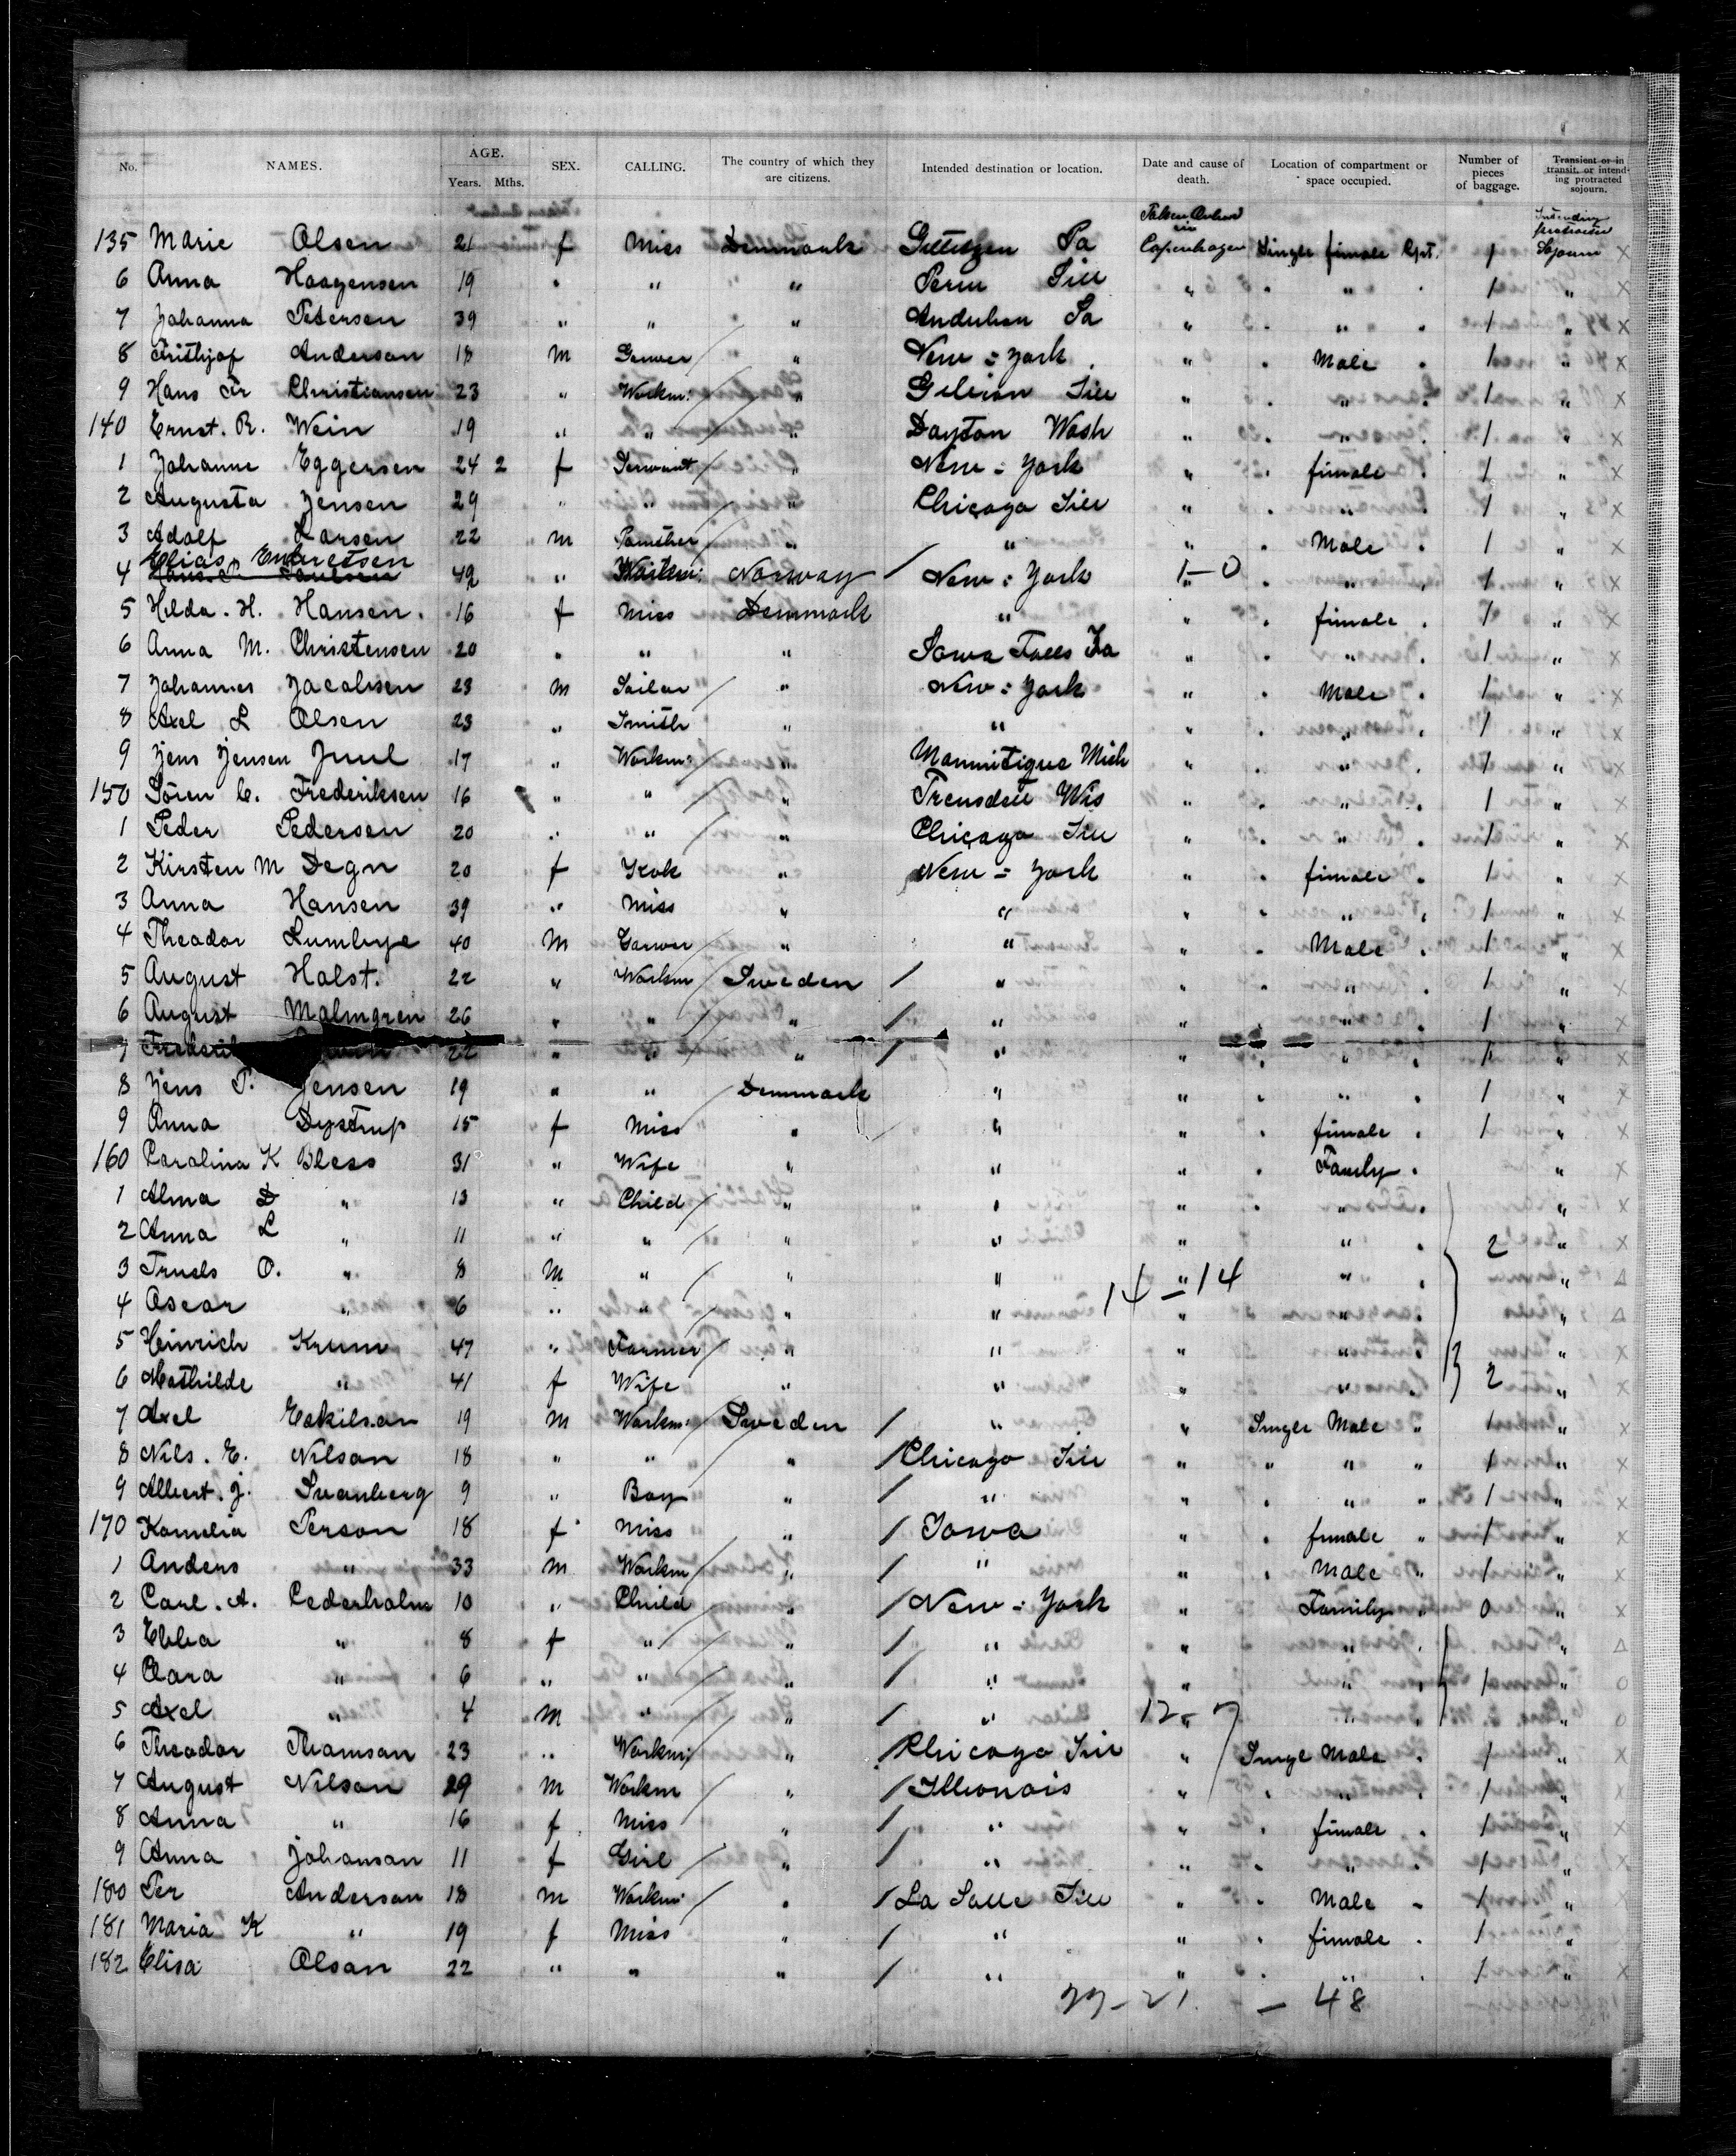 No. NAMES. AGE. Years. Mths. SEX. CALLING. The country of which they are citizens. Intended destination or location. Date and cause of death. Location of compartment or space occupied. Number of pieces of baggage. Transient or in transit, or intending protracted sojourn.
135 Marie Olsen 21 f Miss Denmark Pa Taken Onboard in Copenhagen Single female Cpt. 1 Intending protracted Sojourn X
6 Anna Haagensen 19 " " " Peru Ill " " 1 " X
7 Johanna Petersen 39 " " " Audubon Ia " " 1 " X
8 Frithjof Anderson 18 M " New=York " Male 1 " X
9 Hans Fr Christiansen 23 " Workm: " Ill " " 1 " X
140 Ernst. R. Wein 19 " " " Dayton Wash " " 1 " X
1 Johanne Eggersen 24 2 f Servant " New=York " female 1 " X
2 Augusta Jensen 29 " " " Chicago Ill " " 1 " X
3 Adolf Larsen 22 m " " " Male 1 " X
4 Elias Endretsen 49 " Workm: Norway / New=York 1-0 " " 1 " X
5 Hilda. H. Hansen. 16 f Miss Denmark " " female 1 " X
6 Anna M. Christensen 20 " " " Iowa Falls Ia " " 1 " X
7 Johannes Jacobsen 23 m Sailor " New=York " Male 1 " X
8 Axel L Olsen 23 " Smith " " " " 1 " X
9 Jens Jensen Juul 17 " Workm: " Mannitique Mich " " 1 " X
150 Sören C. Frederiksen 16 " " " Wis " " 1 " X
1 Peder Pedersen 20 " " " Chicago Ill " " 1 " X
2 Kirsten M Degn 20 f Kok " New=York " female 1 " X
3 Anna Hansen 39 " Miss " " " " 1 " X
4 Theodor Lumbye 40 M " " " Male 1 " X
5 August Holst. 22 " Workm Sweden / " " " 1 " X
6 August Malmgren 26 " " " / " " " 1 " X
7 22 " " " / " " " 1 " X
8 Jens P. Jensen 19 " " Denmark " " " 1 " X
9 Anna Dystrup 15 f Miss " " " female 1 " X
160 Carolina K Bless 31 " Wife " " " Family " X
1 Alma D " 13 " Child " " " " " X
2 Anna L " 11 " " " " " " 2 " X
3 Truels O. " 8 M " " " " " " Δ
4 Oscar " 6 " " " " 14-14 " " " Δ
5 Heinrich Krum 47 " Farmer " " " " " X
6 Mathilde " 41 f Wife " " " " 2 " X
7 Axel Eskilson 19 m Workm: Sweden / " " Single Male " 1 " X
8 Nils. E. Nilson 18 " " " / Chicago Ill " " " " 1 " X
9 Albert. J. Svanberg 9 " Boy " / " " " " 1 " X
170 Kornelia Person 18 f Miss " / Iowa " female " 1 " X
1 Anders " 33 m Workm " / " " Male " 1 " X
2 Carl. A. Cederholm 10 " Child " / New=York " Family " 0 " X
3 Ebba " 8 f " " / " " " " Δ
4 Clara " 6 " " " / " " " 1 " O
5 Axel " 4 M " " / " 12-7 " " " O
6 Theodor Thomson 23 " Workm: " / Chicago Ill " Single Male 1 " X
7 August Nilson 29 m Workm " / Illionois " " 1 " X
8 Anna " 16 f Miss " / " " female 1 " X
9 Anna Johanson 11 f Girl " / " " " 1 " X
180 Per Anderson 18 m Workm: " / La Salle Ill " Male 1 " X
181 Maria K " 19 f Miss " / " " female 1 " X
182 Elisa Olson 22 " " " / " " " 1 " X
-21. - 48